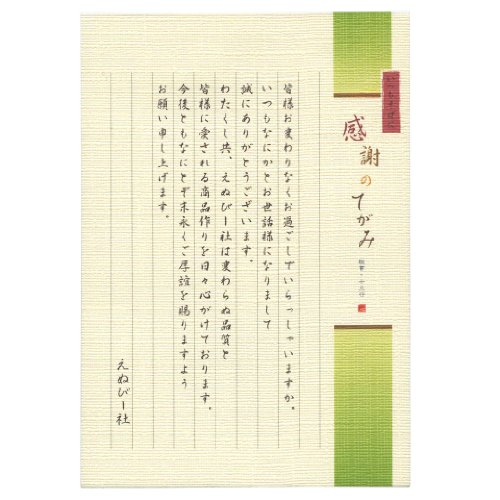 いつもそばに
感謝のてがみ
縦書・十三行
皆様お変わりなくお過ごしでいらっしゃいますか。
いつもなにかとお世話様になりまして
誠にありがとうございます。
わたくし共、えぬびー社は変わらぬ品質と
皆様に愛される商品作りを日々心がけております。
今後ともなにとぞ末永くご厚誼を賜りますよう
お願い申し上げます。
えぬびー社